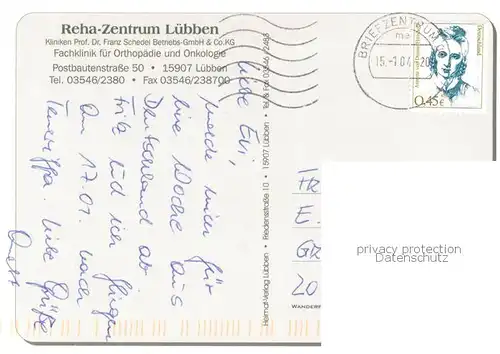 Reha-Zentrum Lübben
Kliniken Prof. Dr. Franz Schedel Betriebs-GmbH & Co.KG
Fachklinik für Orthopädie und Onkologie
Postbautenstraße 50 • 15907 Lübben
Tel. 03546/2380 • Fax 03546/238700
Liebe Evi,
melde mich für
eine Woche aus
Deutschland ab.
Fritz und ich fliegen
am 17.01. nach
Teneriffa. Liebe Grüße
Heimat-Verlag Lübben • Friedensstraße 10 • 15907 Lübben • Tel. & Fax 03546
BRIEFZENTRUM
15.-1.04
20
Deutschland
0,45€
E.
GR
20
WANDERF
privacy protection
Datenschutz